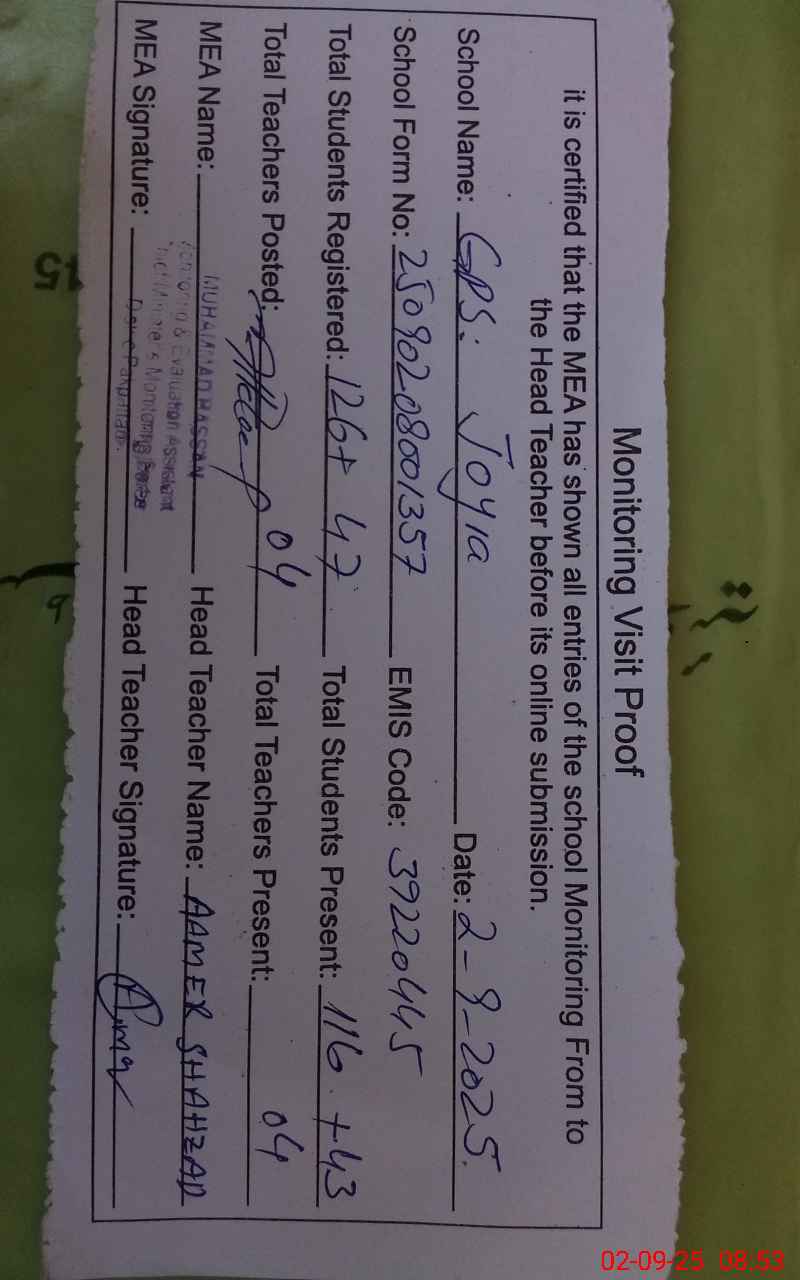 Monitoring Visit Proof
it is certified that the MEA has shown all entries of the school Monitoring From to
the Head Teacher before its online submission.
School Name: GPS. Joyia Date: 2-9-2025.
School Form No: 25090208001357 EMIS Code: 39220445
Total Students Registered: 126+ 47 Total Students Present: 116. +43
Total Teachers Posted: 04 Total Teachers Present: 04
MEA Name: MUHAMMAD HASSAN Head Teacher Name: AAMER SHAHZAD
Monitoring & Evaluation Assistant
MEA Signature: Head Teacher Signature:
02-09-25 08:53